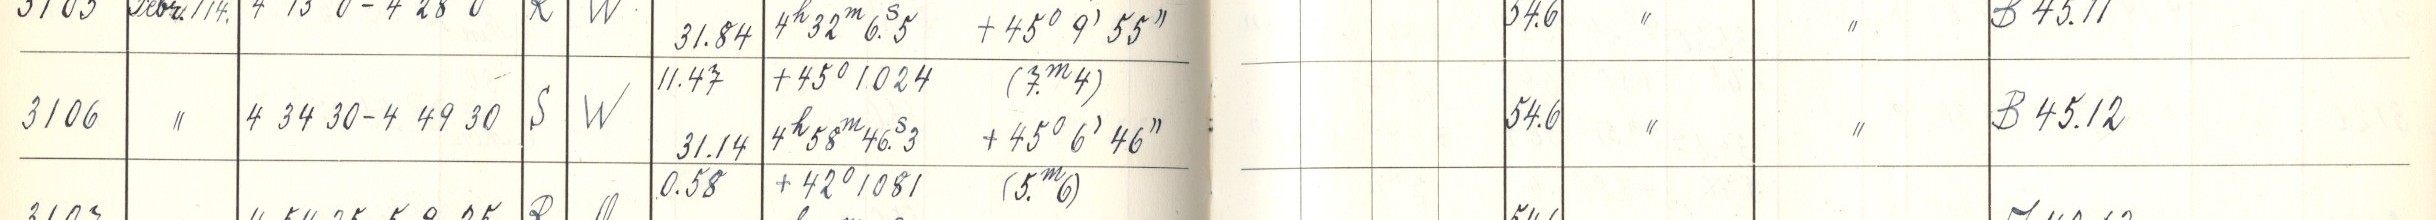 3105 Febr. 14. 4 13 0 - 4 28 0 R W 54.6 " " B 45.11
31.84 4h 32m 6.s5 + 45° 9' 55"
11.47 + 45° 1024 (7.m4)
3106 " 4 34 30 - 4 49 30 S W 54.6 " " B 45.12
31.14 4h 58m 46.s3 + 45° 6' 46"
0.58 + 42° 1081 (5.m6)
3107 4 54 25 - 5 9 25 R 54.6